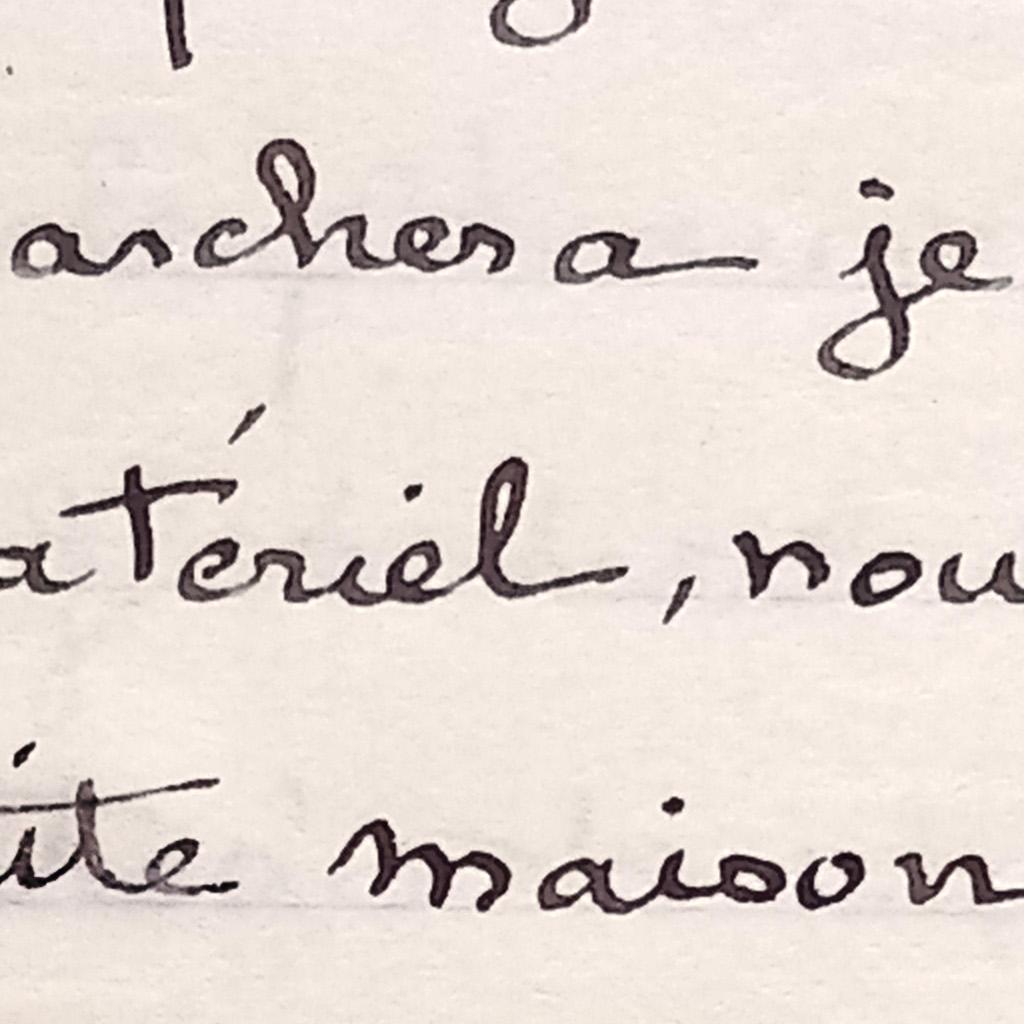 archera je
atériel, nou
ite maison